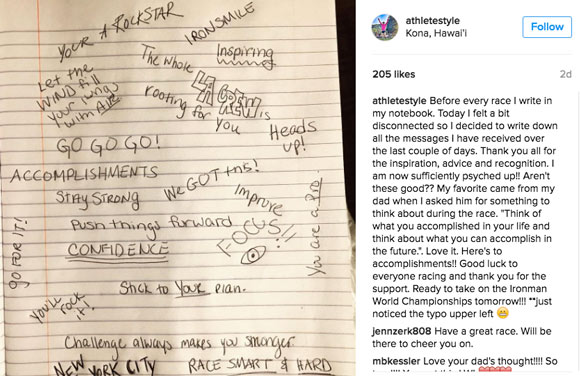 YOUR A ROCKSTAR
IRONSMILE
Let the
WIND fill
your wings
with AIR
The whole
Inspiring
rooting for
is
YOU
Heads
up!
GO GO GO!
ACCOMPLISHMENTS
We GOT this!
STAY STRONG
Improve
Push things forward
FOCUS!!
You are a Pro.
GO FOR IT!
CONFIDENCE
Stick to YOUR Plan.
You'll
rock
it!
Challenge always makes you stronger.
NEW YORK CITY
RACE SMART & HARD
athletestyle
Kona, Hawai'i
Follow
205 likes
2d
athletestyle Before every race I write in
my notebook. Today I felt a bit
disconnected so I decided to write down
all the messages I have received over
the last couple of days. Thank you all for
the inspiration, advice and recognition. I
am now sufficiently psyched up!! Aren't
these good?? My favorite came from my
dad when I asked him for something to
think about during the race. "Think of
what you accomplished in your life and
think about what you can accomplish in
the future.". Love it. Here's to
accomplishments!! Good luck to
everyone racing and thank you for the
support. Ready to take on the Ironman
World Championships tomorrow!!! **just
noticed the typo upper left 😁
jennzerk808 Have a great race. Will be
there to cheer you on.
mbkessler Love your dad's thought!!!! So